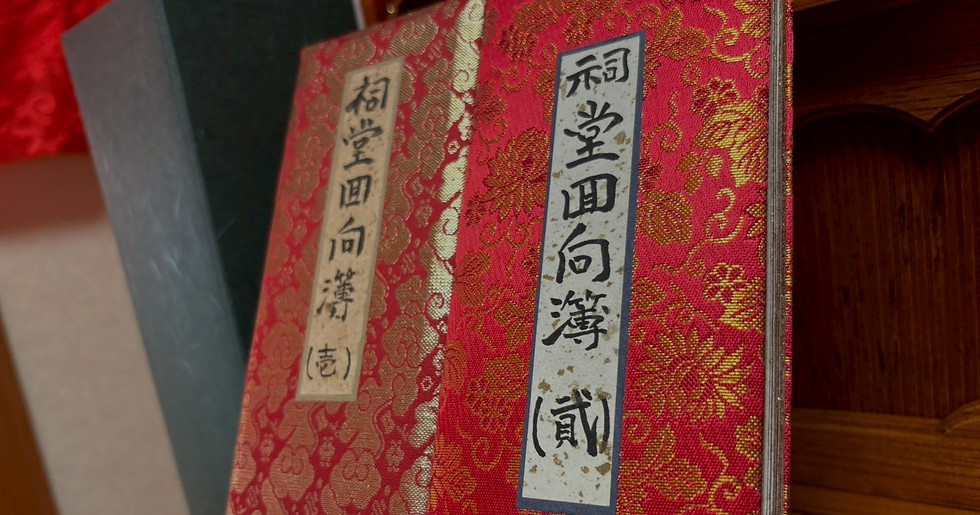 祠堂回向簿(壱)
祠堂回向簿(貳)